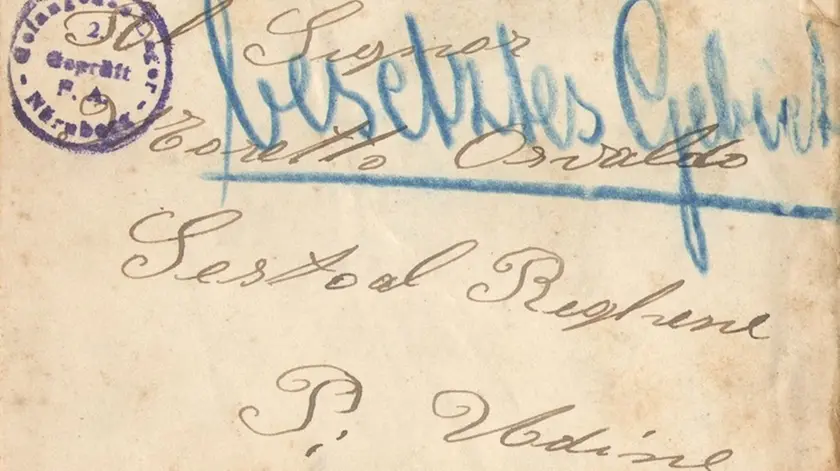 Gefangenenlager
2.
Geprüft
F. A.
- Nürnberg -
Al Signor
besetztes Gebiet
Moretto Osvaldo
Sestoal Reghene
P. Udine